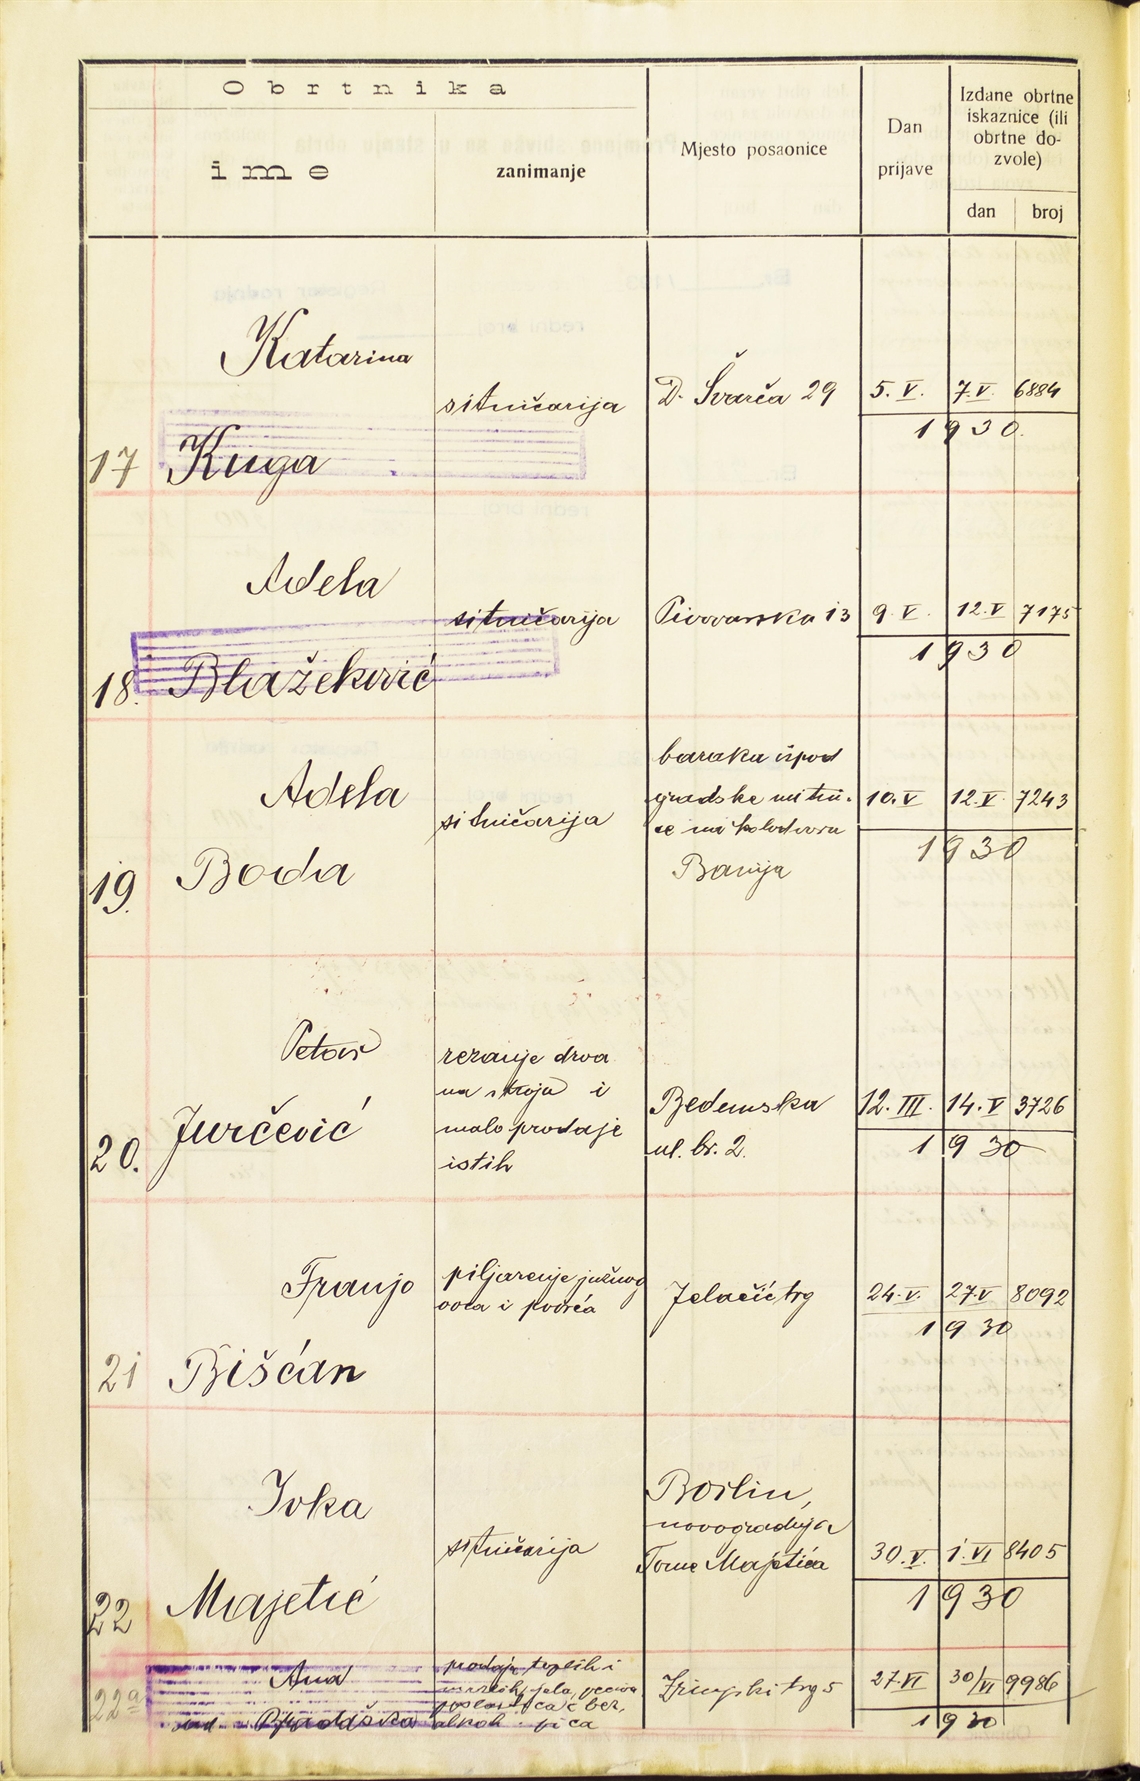 Obrtnika
ime
zanimanje
Mjesto posaonice
Dan
prijave
Izdane obrtne
iskaznice (ili
obrtne do-
zvole)
dan
broj
Katarina
17 Kuga
sitničarija
D. Švarča 29
5. V.
7. V.
6884
1930.
Adela
18. Blažeković
sitničarija
Pivovarska 13
9. V.
12. V
7175
1930
Adela
19. Boda
sitničarija
baraka ispod
gradske mitni-
ce na kolodvoru
Banija
10. V
12. V.
7243
1930
Petar
20. Jurčević
rezanje drva
na stroju i
malo prodaje
istih
Bedemska
ul. br. 2.
12. III.
14. V
3726
1930
Franjo
21 Bišćan
piljarenje južnog
voća i povrća
Jelačić trg
24. V.
27. V
8092
1930
Ivka
22 Majetić
sitničarija
novogradnja
Tome Majetića
30. V.
1. VI
8405
1930
22a Ana
prodaja toplih i
jela, peciva
poslastica i bez.
alkoh. pića
Zrinjski trg 5
27. VI
30/VI
9986
1930